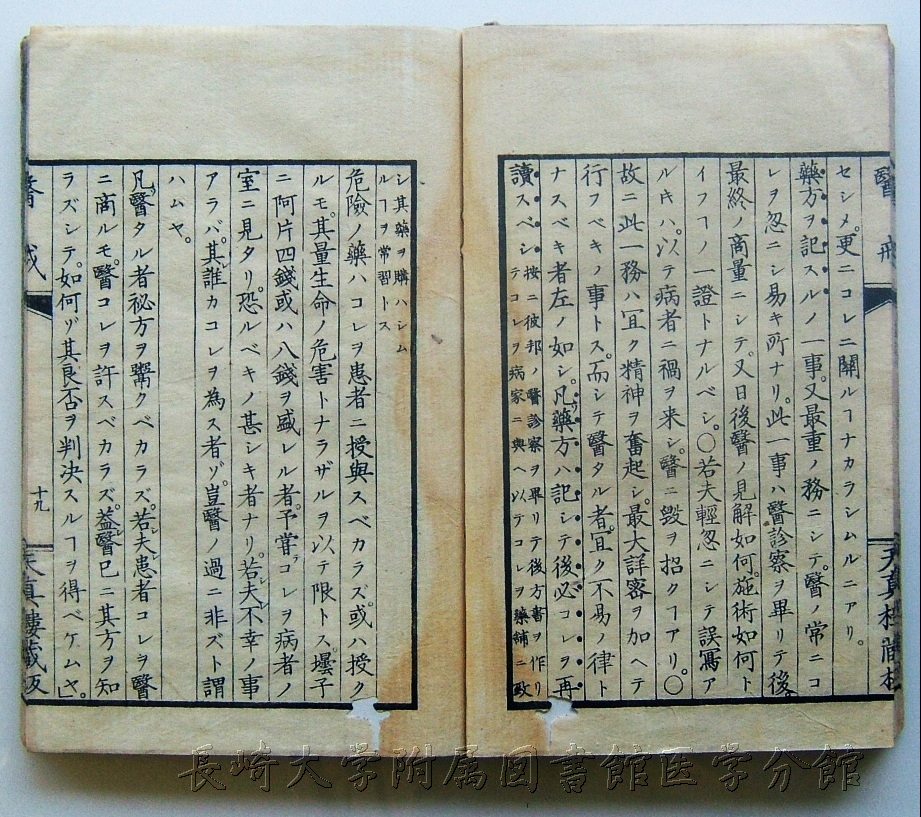 醫戒
天真樓蔵板
セシメ。更ニコレニ關ルヿナカラシムルニアリ。
藥方ヲ記スルノ一事。又最重ノ務ニシテ。醫ノ常ニコ
レヲ忽ニシ易キ所ナリ。此一事ハ醫診察ヲ畢リテ後。
最終ノ商量ニシテ。又日後醫ノ見解如何。施術如何ト
イフヿノ一證トナルベシ。〇若夫輕忽ニシテ誤寫ア
ルキハ。以テ病者ニ禍ヲ来シ。醫ニ毀ヲ招クヿアリ。〇
故ニ此一務ハ宜ク精神ヲ奮起シ。最大詳密ヲ加ヘテ
行フベキノ事トス。而シテ醫タル者。宜ク不易ノ律ト
ナスベキ者左ノ如シ。凡藥方ハ記シテ後必コレヲ再
讀スベシ
按ニ彼邦ノ醫診察ヲ畢リテ後方書ヲ作リ
テコレヲ病家ニ與ヘ以テコレヲ藥舖ニ致
シ其藥ヲ購ハシム
ルヿヲ常習トス
危險ノ藥ハコレヲ患者ニ授與スベカラズ。或ハ授ク
ルモ。其量生命ノ危害トナラザルヲ以テ限トス。壜子
ニ阿片四錢或ハ八錢ヲ盛レル者。予嘗コレヲ病者ノ
室ニ見タリ。恐ルベキノ甚シキ者ナリ。若夫不幸ノ事
アラバ。其誰カコレヲ為ス者ゾ。豈醫ノ過ニ非ズト謂
ハムヤ。
凡醫タル者秘方ヲ鬻クベカラズ。若夫患者コレヲ醫
ニ商ルモ。醫コレヲ許スベカラズ。蓋醫已ニ其方ヲ知
ラズシテ。如何ゾ其良否ヲ判決スルヿヲ得ベケムヤ。」
醫戒
十九
天真樓蔵板
長崎大学附属図書館医学分館